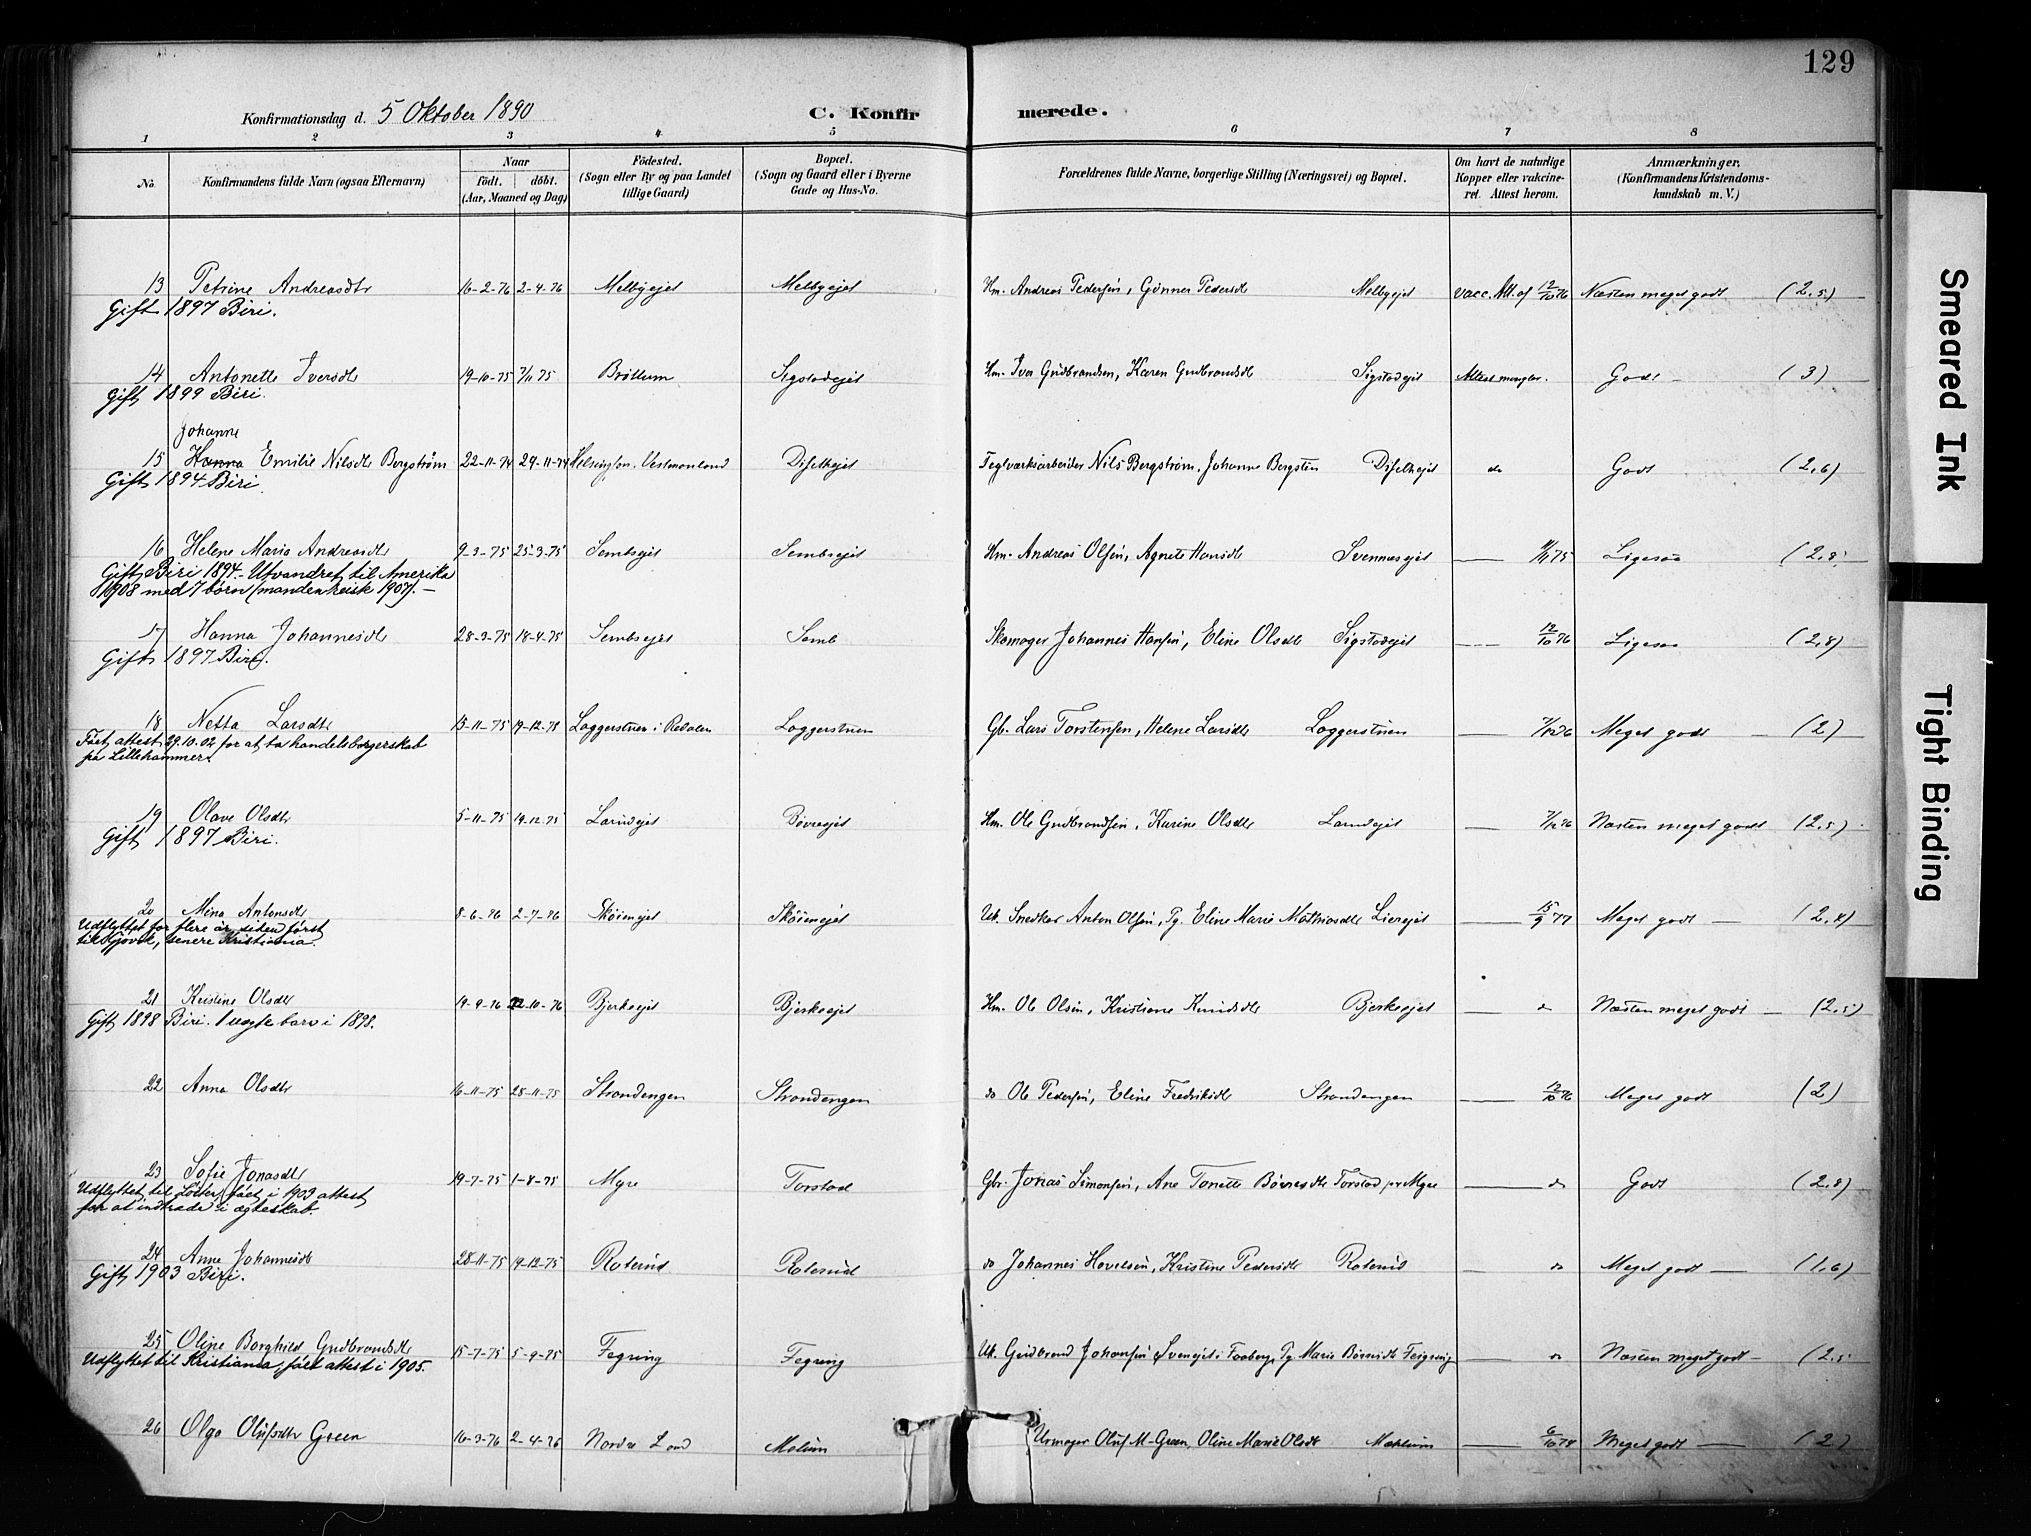 129
Konfirmationsdag d. 5 Oktober 1890 C. Konfirmerede.
1 2 3 4 5 6 7 8
No. Konfirmandens fulde Navn (ogsaa Efternavn) Naar født. døbt. (Aar, Maaned og Dag) Fødested. (Sogn eller By og paa Landet tillige Gaard) Bopæl. (Sogn og Gaard eller i Byerne Gade og Hus-No. Forældrenes fulde Navne, borgerlige Stilling (Næringsvei) og Bopæl. Om havt de naturlige Kopper eller vakcineret. Attest herom. Anmærkninger. (Konfirmandens Kristendomskundskab m. V.)
13 Petrine Andreasdtr 16-2-76 2-4-76 Melbyejet Melbyejet Hm. Andreas Pedersen, Gunner Pedersdtr Melbyejet vacc. Att. af 12/10 76 Næsten meget godt (2,5)
Gift 1897 Biri.
14 Antonette Iversdtr 19-10-75 7/11 75 Brøttum Sigstadejet Hm. Iver Gudbrandsen, Karen Gudbrandsdtr Sigstadejet Attest mangler. Godt (3)
Gift 1899 Biri.
Johanne
15 Hanna Emilie Nilsdtr Bergstrøm 22-11-74 29-11-74 Helsington. Vestmanland Diselhejet Teglværksarbeider Nils Bergstrøm. Johanne Bergsten Diselhejet do Godt (2,6)
Gift 1894 Biri
16 Helene Maria Andreasdtr 9-3-75 25-3-75 Sembsejet Sembsejet Hm. Andreas Olsen, Agnete Hansdtr Svennæsejet — 75 Ligesaa (2,8)
Gift Biri 1894. Utvandret til Amerika
1908 med 7 børn (manden reiste 1907). —
17 Hanna Johannesdtr 28-3-75 18-4-75 Sembsejet Semb Skomager Johannes Hansen, Eline Olsdtr Sigstadejet — 12/10 76 Ligesaa (2,8)
Gift 1897 Biri.
18 Netta Larsdtr 15-11-75 19-12-75 Laggerstuen i Redalen Laggerstuen Gb. Lars Torstensen, Helene Larsdtr Laggerstuen — Meget godt — (2)
Fået attest 29.10.02 for at ta handelsborgerskab
på Lillehammer.
19 Olave Olsdtr 5-11-75 19-12-75 Larudejet Bøvreejet Hm. Ole Gudbrandsen, Karine Olsdtr Larudejet — Næsten meget godt (2,5)
Gift 1897 Biri.
20 Mina Antonsdtr 8-6-76 2-7-76 Skøienejet Skøienejet Uk. Snedker Anton Olsen, Pg. Eline Marie Mathiasdtr Lierejet — 15/9 77 Meget godt — (2,4)
Udflyttet for flere år siden først
til Gjøvik, senere Kristiania.
21 Kristine Olsdtr 19-9-76 22-10-76 Bjerkeejet Bjerkeejet Hm. Ole Olsen, Kristiane Knudsdtr Bjerkeejet — do Næsten meget godt — (2,5)
Gift 1898 Biri. 1 uægte barn i 1898.
22 Anna Olsdtr 16-11-75 28-11-75 Strandengen Strandengen do Ole Pedersen, Eline Fredriksdtr Strandengen — 12/10 76 Meget godt (2)
23 Sofie Jonasdtr 19-7-75 1-8-75 Myre Torstad Gbr. Jonas Simonsen, Ane Tonette Børresdtr Torstad pr Myre — do Godt (2,8)
Udflyttet til Løiten, fået i 1903 attest
for at indtræde i ægteskab.
24 Anne Johannesdtr 28-11-75 19-12-75 Roterud Roterud do Johannes Hovelsen, Kristine Pedersdtr Roterud — do Meget godt — (1,6)
Gift 1903 Biri.
25 Oline Borghild Gudbrandsdtr 15-7-75 5-9-75 Fegring Fegring Uk. Gudbrand Johansen Svenejet i Faaberg, Pg Marie Børresdtr Feigring — do Næsten meget godt — (2,5
Udflyttet til Kristiania, fået attest i 1905.
26 Olga Olufsdtr Green 16-3-76 2-4-76 Nordre Land Mælum Urmager Oluf M. Green, Oline Marie Olsdtr Mæhlum — 6/10 78 Meget godt — (2)
Smeared Ink
Tight Binding